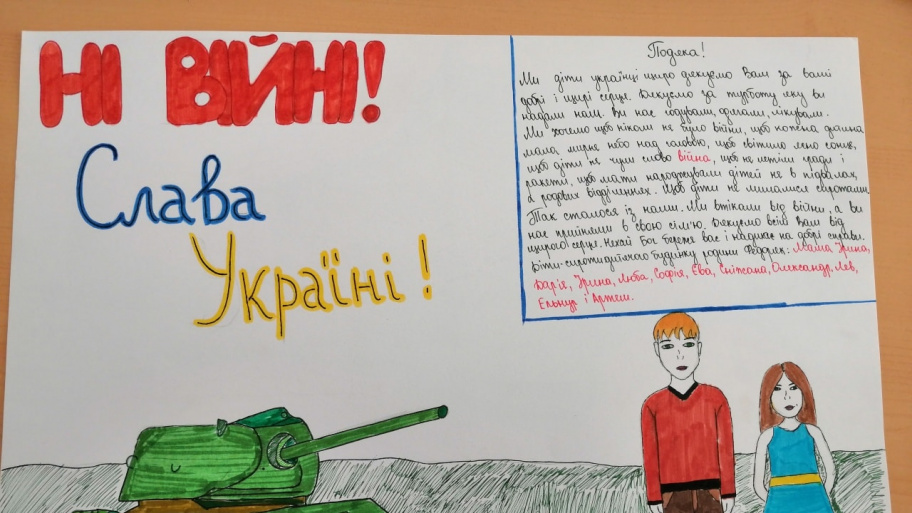 НІ ВІЙНІ!
Слава
Україні!
Подяка!
Ми діти українці щиро дякуємо Вам за ваші
добрі і щирі серце. Дякуємо за турботу яку ви
надали нам. Ви нас годували, одягали, лікували.
Ми хочемо щоб ніколи не було війни, щоб кожна дитина
мала мирне небо над головою, щоб світило ясно сонце,
щоб діти не чули слово війна, щоб не летіли гради і
ракети, щоб мати народжували дітей не в підвалах,
а родових відділеннях. Щоб діти не лишалися сиротами.
Так сталося із нами. Ми втікали від війни, а ви
нас прийняли в свою сім'ю. Дякуємо всім Вам від
щирого серця. Нехай Бог береже вас і надихає на добрі справи.
Діти-сироти дитячого будинку родини Федорчак: Мама Ірина,
Дар'я, Ірина, Люба, Софія, Єва, Сніжана, Олександр, Лев,
Ельнур і Артем.